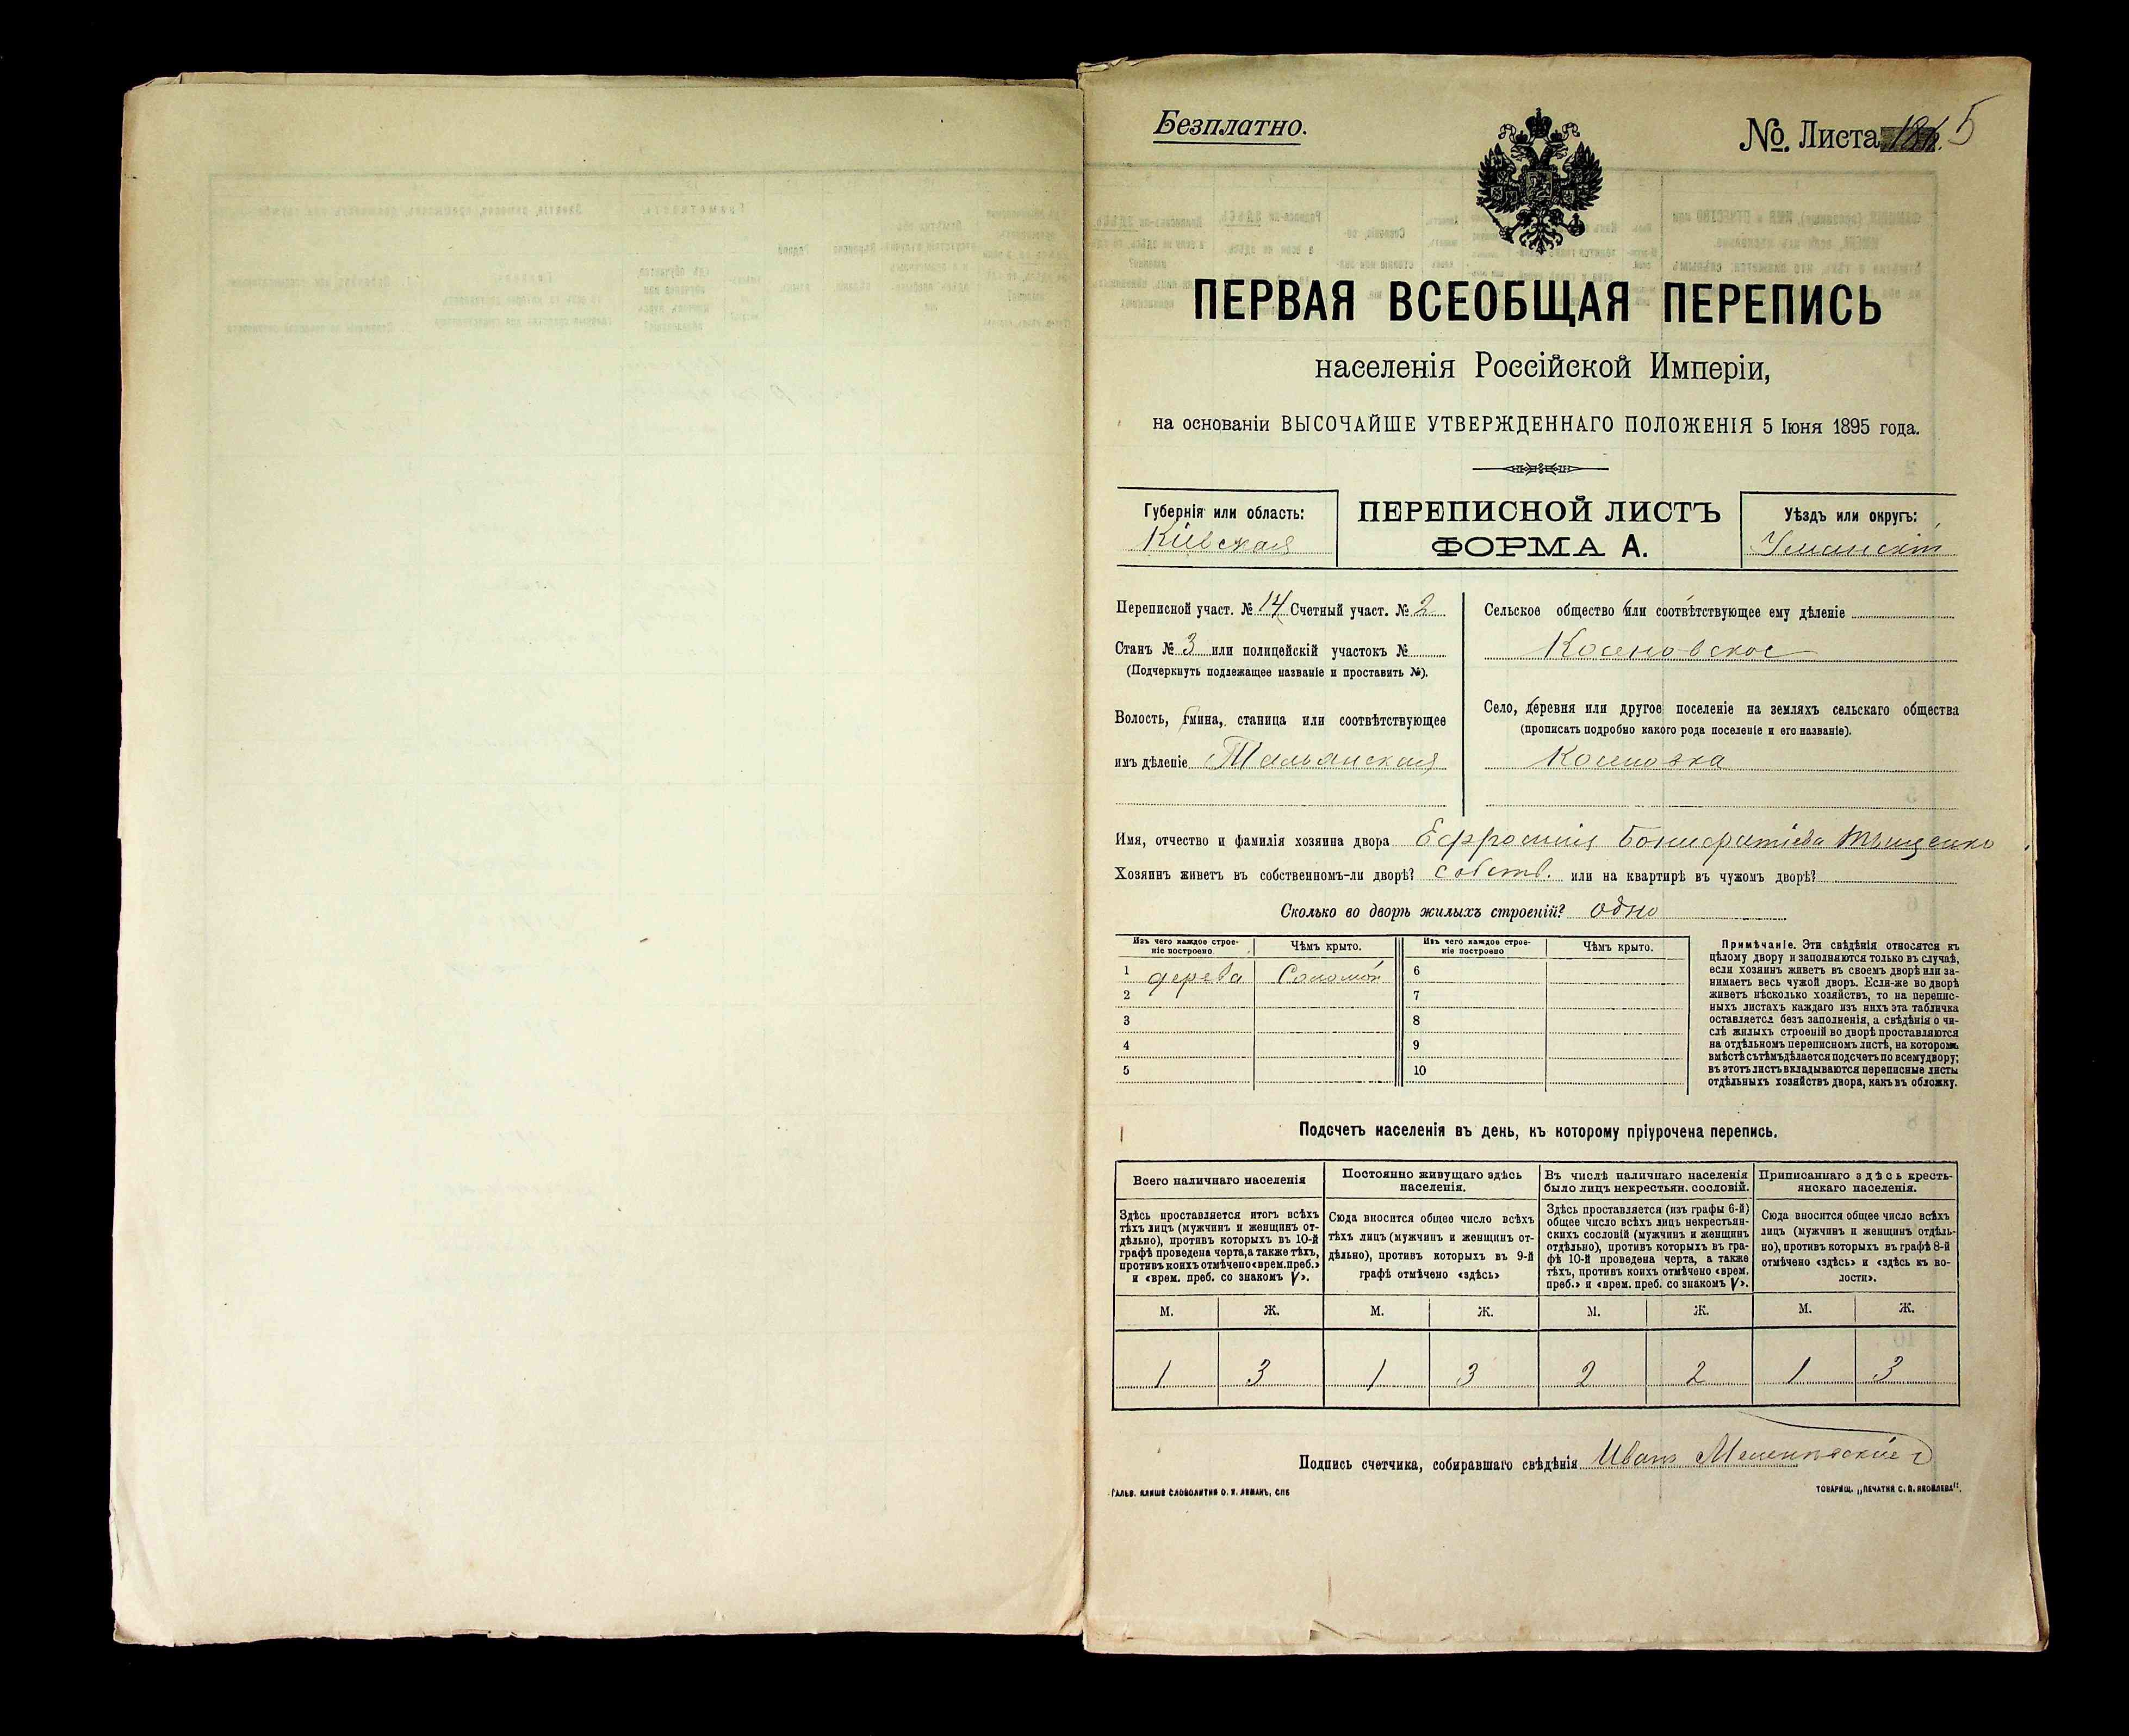 Безплатно.
№. Листа 5
ПЕРВАЯ ВСЕОБЩАЯ ПЕРЕПИСЬ
населенія Россійской Имперіи,
на основаніи ВЫСОЧАЙШЕ УТВЕРЖДЕННАГО ПОЛОЖЕНІЯ 5 Іюня 1895 года.
Губернія или область:
Кіевская
ПЕРЕПИСНОЙ ЛИСТЪ
ФОРМА А.
Уѣздъ или округъ:
Уманскій
Переписной участ. № 14 Счетный участ. № 2
Станъ № 3 или полицейскій участокъ №
(Подчеркнуть подлежащее названіе и проставить №).
Волость, гмина, станица или соотвѣтствующее
имъ дѣленіе Тальянская
Сельское общество или соотвѣтствующее ему дѣленіе
Косеновское
Село, деревня или другое поселеніе на земляхъ сельскаго общества
(прописать подробно какого рода поселеніе и его названіе).
Косеновка
Имя, отчество и фамилія хозяина двора Ефросинія Бонифатіева Тищенко
Хозяинъ живетъ въ собственномъ-ли дворѣ? собств. или на квартирѣ въ чужомъ дворѣ?
Сколько во дворѣ жилыхъ строеній? одно
Изъ чего каждое строе-
ніе построено
Чѣмъ крыто.
1 дерева Соломой
2
3
4
5
Изъ чего каждое строе-
ніе построено
Чѣмъ крыто.
6
7
8
9
10
Примѣчаніе. Эти свѣдѣнія относятся къ
цѣлому двору и заполняются только въ случаѣ,
если хозяинъ живетъ въ своемъ дворѣ или за-
нимаетъ весь чужой дворъ. Если-же во дворѣ
живетъ нѣсколько хозяйствъ, то на перепис-
ныхъ листахъ каждаго изъ нихъ эта табличка
оставляется безъ заполненія, а свѣдѣнія о чи-
слѣ жилыхъ строеній во дворѣ проставляются
на отдѣльномъ переписномъ листѣ, на которомъ
вмѣстѣ съ тѣмъ дѣлается подсчетъ по всему двору;
въ этотъ листъ вкладываются переписные листы
отдѣльныхъ хозяйствъ двора, какъ въ обложку.
Подсчетъ населенія въ день, къ которому пріурочена перепись.
Всего наличнаго населенія
Здѣсь проставляется итогъ всѣхъ
тѣхъ лицъ (мужчинъ и женщинъ от-
дѣльно), противъ которыхъ въ 10-й
графѣ проведена черта, а также тѣхъ,
противъ коихъ отмѣчено «врем. преб.»
и «врем. преб. со знакомъ V».
Постоянно живущаго здѣсь
населенія.
Сюда вносится общее число всѣхъ
тѣхъ лицъ (мужчинъ и женщинъ от-
дѣльно), противъ которыхъ въ 9-й
графѣ отмѣчено «здѣсь»
Въ числѣ наличнаго населенія
было лицъ некрестьян. сословій.
Здѣсь проставляется (изъ графы 6-й)
общее число всѣхъ лицъ некрестьян-
скихъ сословій (мужчинъ и женщинъ
отдѣльно), противъ которыхъ въ гра-
фѣ 10-й проведена черта, а также
тѣхъ, противъ коихъ отмѣчено «врем.
преб.» и «врем. преб. со знакомъ V».
Приписаннаго здѣсь кресть-
янскаго населенія.
Сюда вносится общее число всѣхъ
лицъ (мужчинъ и женщинъ отдѣль-
но), противъ которыхъ въ графѣ 8-й
отмѣчено «здѣсь» и «здѣсь къ во-
лости».
М. Ж. М. Ж. М. Ж. М. Ж.
1 3 1 3 2 2 1 3
Подпись счетчика, собиравшаго свѣдѣнія Иванъ
ГАЛЬВ. КЛИШЕ СЛОВОЛИТНИ О. И. ЛЕМАНЪ, СПБ
ТОВАРИЩ. „ПЕЧАТНЯ С. П. ЯКОВЛЕВА".